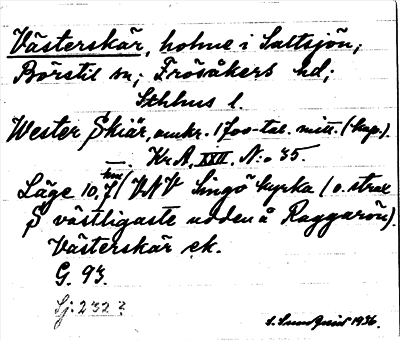 Västerskär, holme i Saltsjön;
Börstil sn; Frösåkers hd;
Sthlms l.
Wester Skiär, omkr. 1700-tal. mitt. (kop.).
Kr. A. XXII. N:o 35.
Läge 10,7 km VNV Singö kyrka (o. strax
S västligaste udden å Raggarön).
Västerskär ek.
G. 93.
Sj: 232 ?
S. Sundqvist 1936.